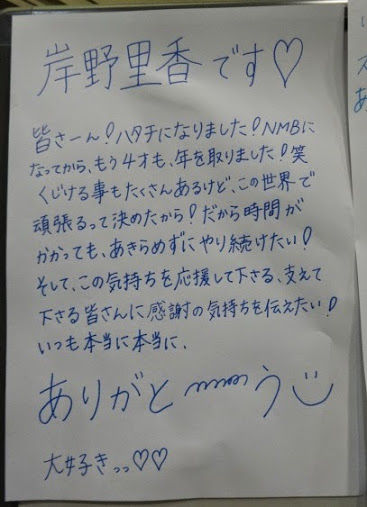 岸野里香です♡
皆さーん！ハタチになりました！NMBに
なってから、もう4才も、年を取りました！笑
くじける事もたくさんあるけど、この世界で
頑張るって決めたから！だから時間が
かかっても、あきらめずにやり続けたい！
そして、この気持ちを応援して下さる、支えて
下さる皆さんに感謝の気持ちを伝えたい！
いつも本当に本当に、
ありがと〰〰う
大好きっっ♡♡